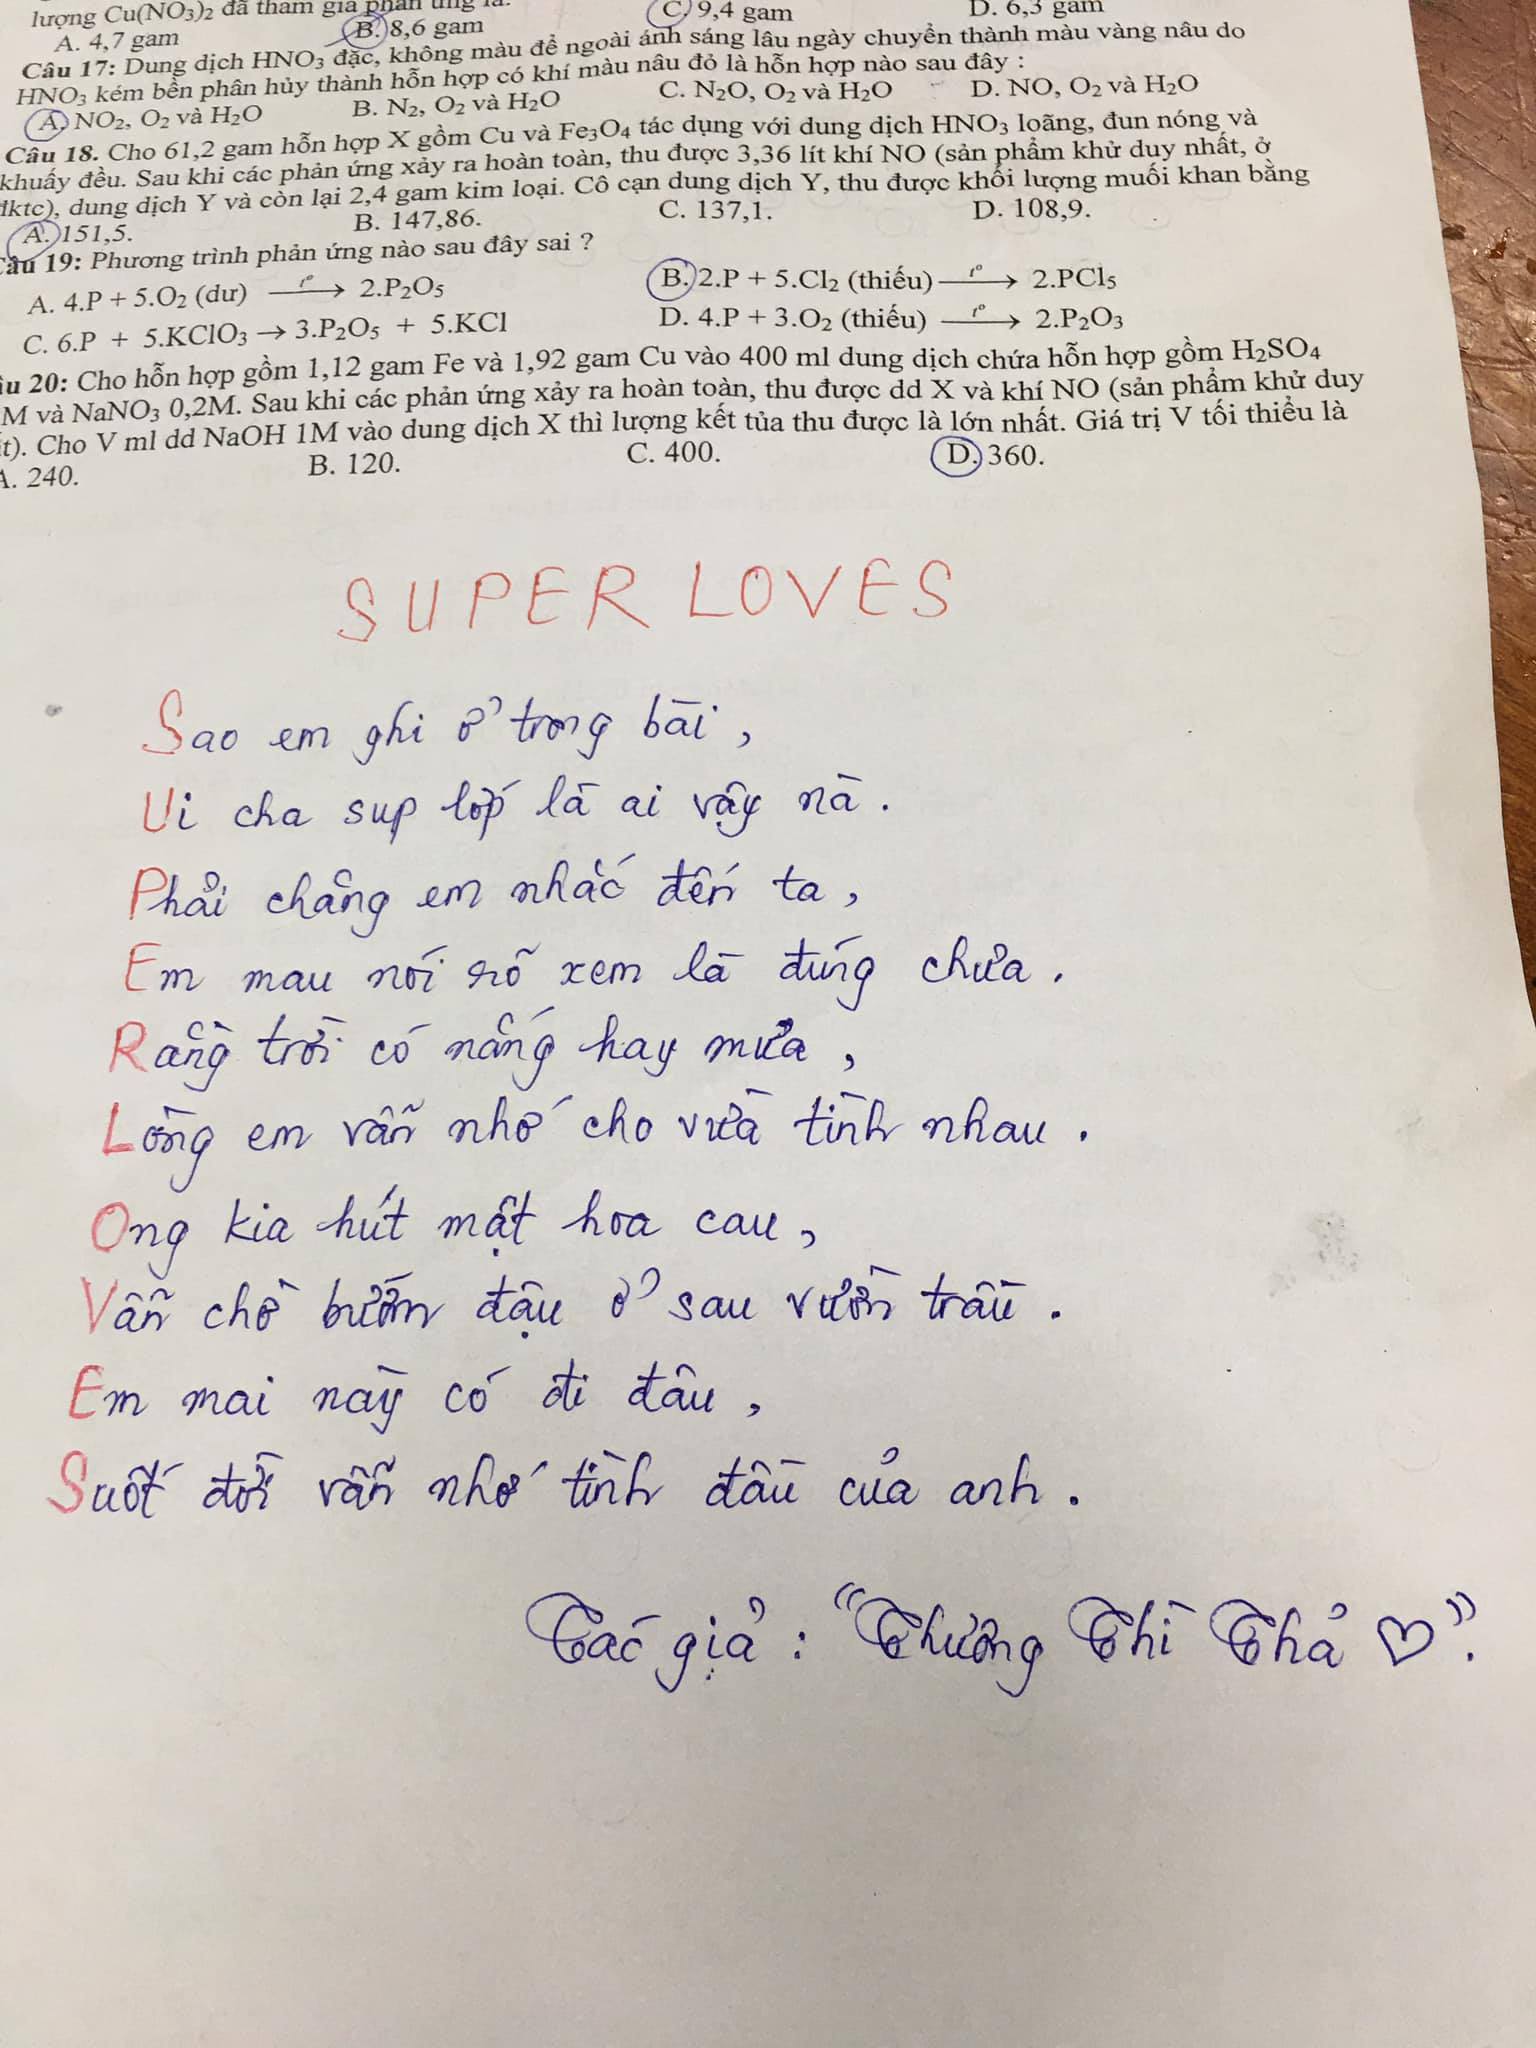 lượng Cu(NO₃)₂ đã tham gia phản ứng là:
A. 4,7 gam B. 8,6 gam C. 9,4 gam D. 6,3 gam
Câu 17: Dung dịch HNO₃ đặc, không màu để ngoài ánh sáng lâu ngày chuyển thành màu vàng nâu do
HNO₃ kém bền phân hủy thành hỗn hợp có khí màu nâu đỏ là hỗn hợp nào sau đây :
A. NO₂, O₂ và H₂O B. N₂, O₂ và H₂O C. N₂O, O₂ và H₂O D. NO, O₂ và H₂O
Câu 18. Cho 61,2 gam hỗn hợp X gồm Cu và Fe₃O₄ tác dụng với dung dịch HNO₃ loãng, đun nóng và
khuấy đều. Sau khi các phản ứng xảy ra hoàn toàn, thu được 3,36 lít khí NO (sản phẩm khử duy nhất, ở
đktc), dung dịch Y và còn lại 2,4 gam kim loại. Cô cạn dung dịch Y, thu được khối lượng muối khan bằng
A. 151,5. B. 147,86. C. 137,1. D. 108,9.
Câu 19: Phương trình phản ứng nào sau đây sai ?
A. 4.P + 5.O₂ (dư) —t°→ 2.P₂O₅ B. 2.P + 5.Cl₂ (thiếu) —t°→ 2.PCl₅
C. 6.P + 5.KClO₃ → 3.P₂O₅ + 5.KCl D. 4.P + 3.O₂ (thiếu) —t°→ 2.P₂O₃
u 20: Cho hỗn hợp gồm 1,12 gam Fe và 1,92 gam Cu vào 400 ml dung dịch chứa hỗn hợp gồm H₂SO₄
M và NaNO₃ 0,2M. Sau khi các phản ứng xảy ra hoàn toàn, thu được dd X và khí NO (sản phẩm khử duy
t). Cho V ml dd NaOH 1M vào dung dịch X thì lượng kết tủa thu được là lớn nhất. Giá trị V tối thiểu là
A. 240. B. 120. C. 400. D. 360.
SUPER LOVES
Sao em ghi ở trong bài,
Ui cha sup lớp là ai vậy nà.
Phải chăng em nhắc đến ta,
Em mau nói rõ xem là đúng chưa.
Rằng trời có nắng hay mưa,
Lòng em vẫn nhớ cho vừa tình nhau.
Ong kia hút mật hoa cau,
Vẫn chờ bướm đậu ở sau vườn trầu.
Em mai này có đi đâu,
Suốt đời vẫn nhớ tình đầu của anh.
Tác giả : "Thương Thì Thả ♡".